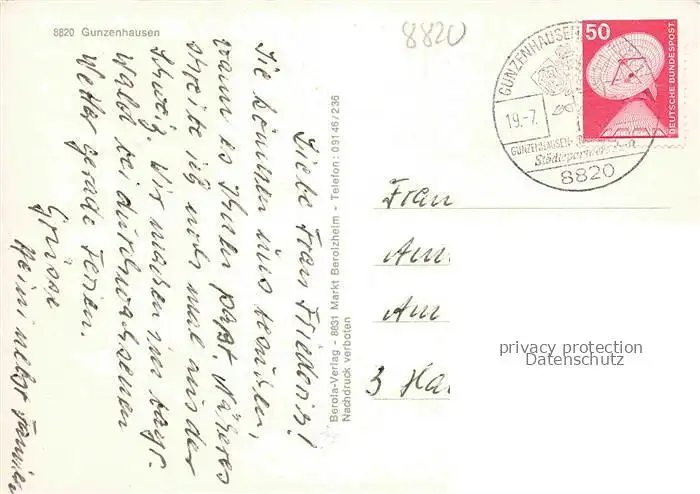 8820 Gunzenhausen
8820
Liebe Frau Friedrich!
Sie können uns besuchen,
wann es Ihnen paßt. Näheres
schreibe ich noch mal aus der
Schweiz. Wir machen im bayr.
Wald bei durchwachsenen
Wetter gerade Ferien.
Grüße
Heini nebst Familie
Berola-Verlag - 8831 Markt Berolzheim - Telefon: 09146/236
Nachdruck verboten
GUNZENHAUSEN
19.-7.
GUNZENHAUSEN-
8820
50
DEUTSCHE BUNDESPOST
Frau
Am
Am
3 Ha
privacy protection
Datenschutz